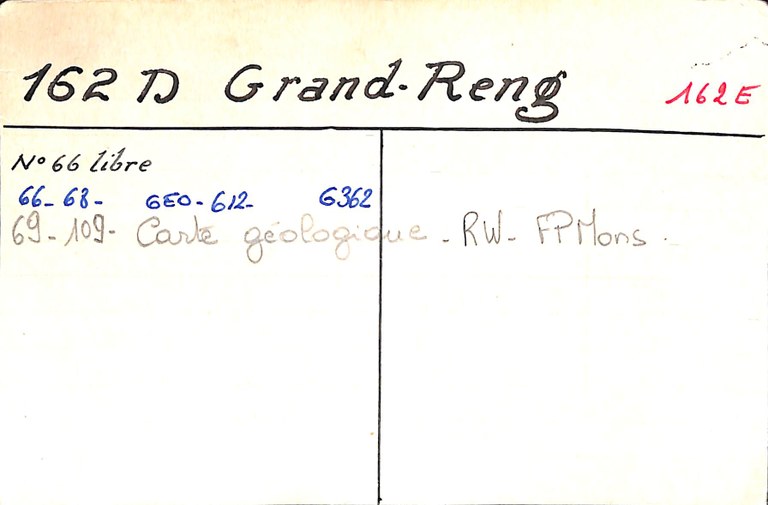 162 D Grand-Reng 162E
N° 66 libre
66-68- GEO-612- G362
69-109- Carte géologique - RW- FPMons.